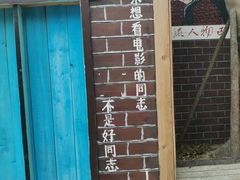 想看电影的同志
不是好同志
流人物